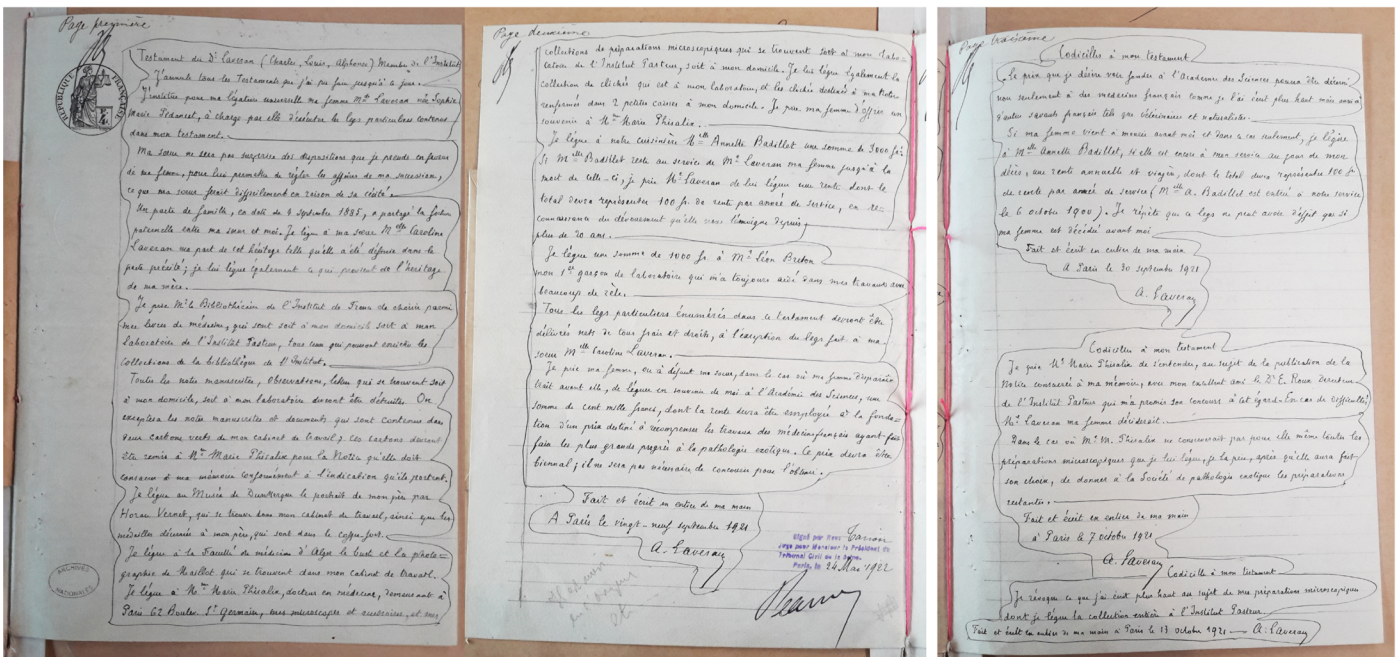 Page première
Testament du Dr Laveran (Charles, Louis, Alphonse) Membre de l'Institut
J'annule tous les Testaments que j'ai pu faire jusqu'à ce jour.
J'institue pour ma légataire universelle ma femme Mme Laveran née Sophie
Marie Pidancet, à charge par elle d'exécuter les legs particuliers contenus
dans mon testament.
Ma sœur ne sera pas surprise des dispositions que je prends en faveur
de ma femme, pour lui permettre de régler les affaires de ma succession,
ce que ma sœur ferait difficilement en raison de sa cécité.
Un pacte de famille, en date du 4 septembre 1885, a partagé la fortune
paternelle entre ma sœur et moi. Je lègue à ma sœur Melle Caroline
Laveran ma part de cet héritage telle qu'elle a été définie dans le
pacte précité; je lui lègue également ce qui provient de l'héritage
de ma mère.
Je prie Mr le Bibliothécaire de l'Institut de France de choisir parmi
mes livres de médecine, qui sont soit à mon domicile soit à mon
Laboratoire de l'Institut Pasteur, tous ceux qui pourront enrichir les
collections de la bibliothèque de l'Institut.
Toutes les notes manuscrites, observations, lettres qui se trouvent soit
à mon domicile, soit à mon laboratoire devront être détruites. On
exceptera les notes manuscrites et documents qui sont contenus dans
deux cartons verts de mon cabinet de travail; ces cartons devront
être remis à Mme Marie Phisalix pour la Notice qu'elle doit
consacrer à ma mémoire conformément à l'indication qu'ils portent.
Je lègue au Musée de Dunkerque le portrait de mon père par
Horace Vernet, qui se trouve dans mon cabinet de travail, ainsi que les
médailles décernées à mon père, qui sont dans le coffre-fort.
Je lègue à la Faculté de médecine d'Alger le buste et la photo-
graphie de Maillot qui se trouvent dans mon cabinet de travail.
Je lègue à Mme Marie Phisalix, docteur en médecine, demeurant à
Paris 62 Boulev. St Germain, mes microscopes et accessoires, et mes
REPUBLIQUE FRANÇAISE
ARCHIVES
NATIONALES
Page deuxième
collections de préparations microscopiques qui se trouvent soit à mon labo-
ratoire de l'Institut Pasteur, soit à mon domicile. Je lui lègue également la
collection de clichés qui est à mon laboratoire, et les clichés destinés à
renfermés dans 2 petites caisses à mon domicile. Je prie ma femme d'offrir un
souvenir à Mme Marie Phisalix.
Je lègue à notre cuisinière Melle Annette Badillet une somme de 3000 fr.
Si Melle Badillet reste au service de Me Laveran ma femme jusqu'à la
mort de celle-ci, je prie Me Laveran de lui léguer une rente dont le
total devra représenter 100 fr. de rente par année de service, en re-
connaissance du dévouement qu'elle nous témoigne depuis
plus de 20 ans.
Je lègue une somme de 1000 fr. à Mr Léon Breton
mon 1er garçon de laboratoire qui m'a toujours aidé dans mes travaux avec
beaucoup de zèle.
Tous les legs particuliers énumérés dans ce testament devront être
délivrés nets de tous frais et droits, à l'exception du legs fait à ma
sœur Melle Caroline Laveran.
Je prie ma femme, ou à défaut ma sœur, dans le cas où ma femme disparaî-
trait avant elle, de léguer en souvenir de moi à l'Académie des Sciences, une
somme de cent mille francs, dont la rente devra être employée à la fonda-
tion d'un prix destiné à récompenser les travaux des médecins français ayant fait
faire les plus grands progrès à la pathologie exotique. Ce prix devra être
biennal; il ne sera pas nécessaire de concourir pour l'obtenir.
Fait et écrit en entier de ma main
A Paris le vingt-neuf septembre 1921
A. Laveran
Signé par Nous
Juge pour Monsieur le Président du
Tribunal Civil de la Seine.
Paris, le 24 Mai 1922
Page troisième
Codicille à mon testament
Le prix que je désire voir fonder à l'Académie des Sciences pourra être décerné
non seulement à des médecins français comme je l'ai écrit plus haut mais aussi à
d'autres savants français tels que vétérinaires et naturalistes.
Si ma femme vient à mourir avant moi et dans ce cas seulement, je lègue
à Melle Annette Badillet, si elle est encore à mon service au jour de mon
décès, une rente annuelle et viagère, dont le total devra représenter 100 fr.
de rente par année de service (Melle A. Badillet est entrée à notre service
le 6 octobre 1900). Je répète que ce legs ne peut avoir d'effet que si
ma femme est décédée avant moi
Fait et écrit en entier de ma main
A Paris le 30 septembre 1921
A. Laveran
Codicille à mon testament
Je prie Me Marie Phisalix de s'entendre, au sujet de la publication de la
Notice consacrée à ma mémoire, avec mon excellent ami le Dr E. Roux Directeur
de l'Institut Pasteur qui m'a promis son concours à cet égard. En cas de difficultés
Me Laveran ma femme déciderait.
Dans le cas où Me M. Phisalix ne conserverait pas pour elle même toutes les
préparations microscopiques que je lui lègue, je la prie, après qu'elle aura fait
son choix, de donner à la Société de pathologie exotique les préparations
restantes.
Fait et écrit en entier de ma main
à Paris le 7 octobre 1921
A. Laveran
Codicille à mon testament
Je révoque ce que j'ai écrit plus haut au sujet de mes préparations microscopiques
dont je lègue la collection entière à l'Institut Pasteur.
Fait et écrit en entier de ma main à Paris le 13 octobre 1921 — A. Laveran